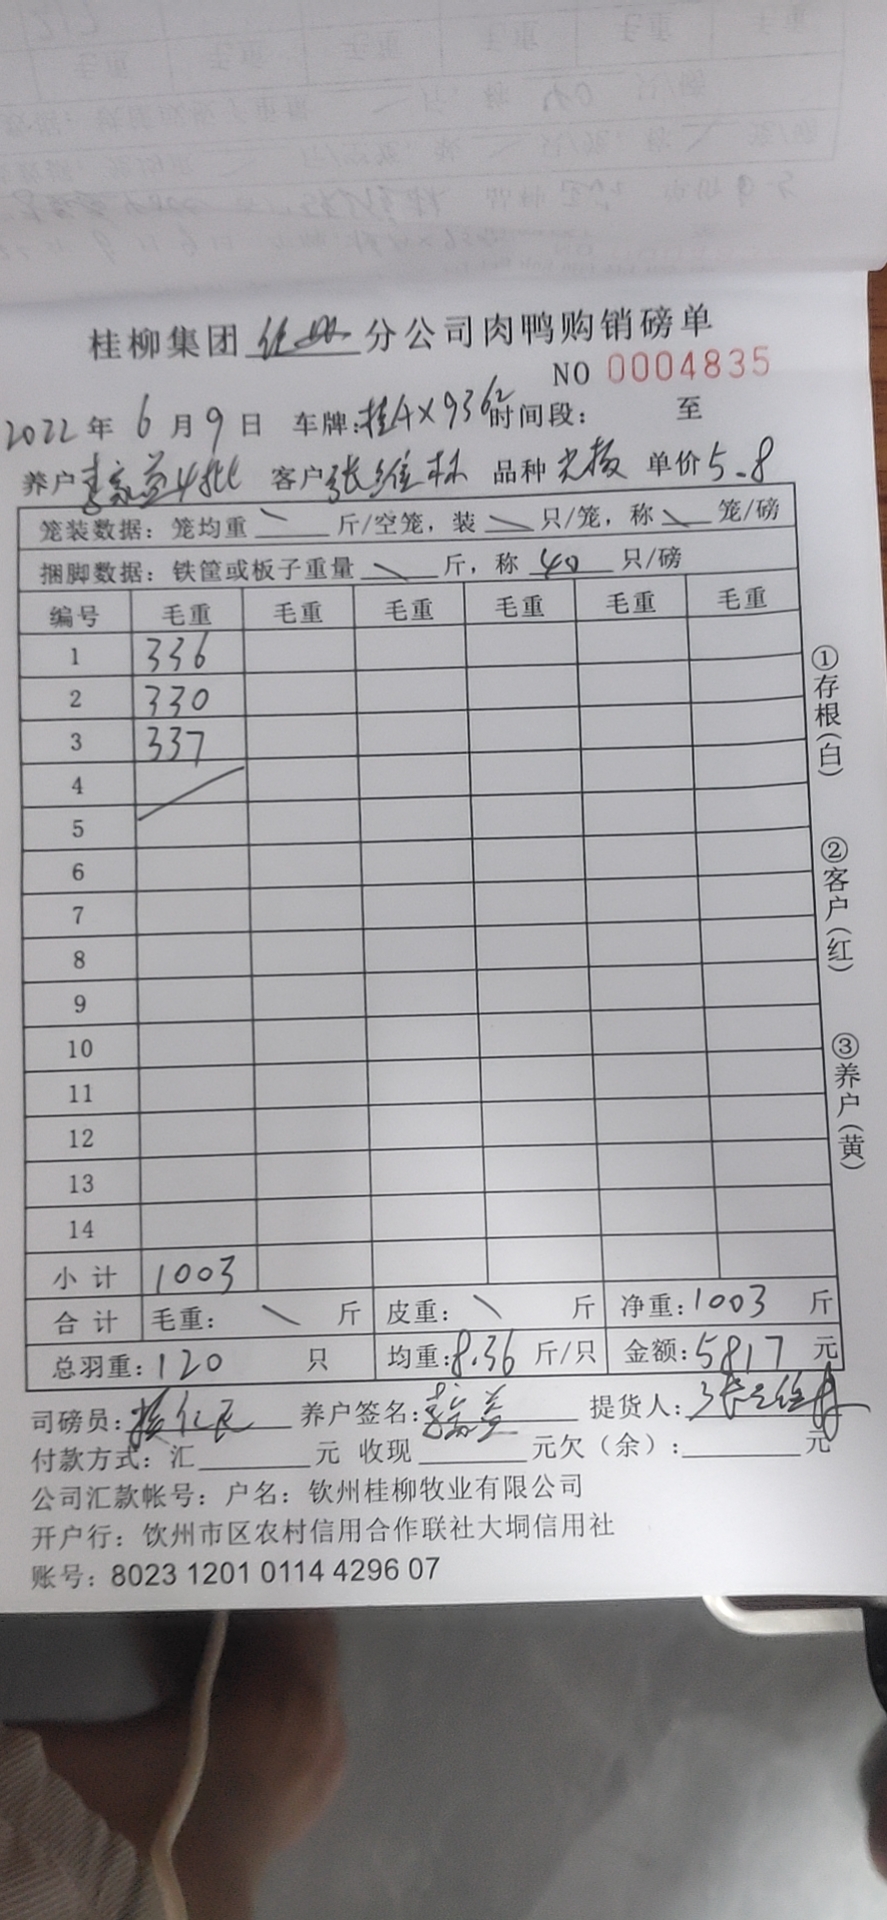 桂柳集团 分公司肉鸭购销磅单
NO 0004835
2022年 6月 9日 车牌:桂A×9362 时间段: 至
养户 李家益4批 客户 张维林 品种 单价 5.8
笼装数据：笼均重 \ 斤/空笼，装 \ 只/笼，称 \ 笼/磅
捆脚数据：铁筐或板子重量 \ 斤，称 40 只/磅
编号 毛重 毛重 毛重 毛重 毛重 毛重
1 336
2 330
3 337
4
5
6
7
8
9
10
11
12
13
14
小计 1003
合计 毛重： \ 斤 皮重： \ 斤 净重：1003 斤
总羽重：120 只 均重：8.36 斤/只 金额：5817 元
司磅员： 养户签名： 提货人：
付款方式：汇 元 收现 元欠（余）： 元
公司汇款帐号：户名：钦州桂柳牧业有限公司
开户行：钦州市区农村信用合作联社大垌信用社
账号：8023 1201 0114 4296 07
①存根（白）
②客户（红）
③养户（黄）